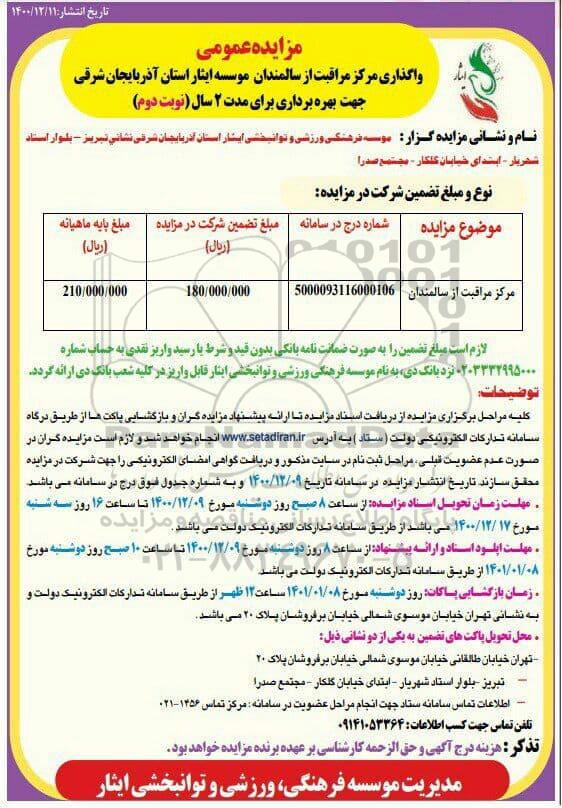 تاریخ انتشار: ۱۴۰۰/۱۲/۱۱
ایثار
مزایده عمومی
واگذاری مرکز مراقبت از سالمندان موسسه ایثار استان آذربایجان شرقی
جهت بهره برداری برای مدت ۲ سال (نوبت دوم)
نام و نشانی مزایده گزار: موسسه فرهنگی ورزشی و توانبخشی ایثار استان آذربایجان شرقی نشانی تبریز – بلوار استاد
شهریار – ابتدای خیابان گلکار – مجتمع صدرا
نوع و مبلغ تضمین شرکت در مزایده:
موضوع مزایده | شماره درج در سامانه | مبلغ تضمین شرکت در مزایده (ریال) | مبلغ پایه ماهیانه (ریال)
مرکز مراقبت از سالمندان | 5000093116000106 | 180/000/000 | 210/000/000
لازم است مبلغ تضمین را به صورت ضمانت نامه بانکی بدون قید و شرط یا رسید واریز نقدی به حساب شماره
۰۲۰۳۳۳۲۹۹۵۰۰۰ نزد بانک دی، به نام موسسه فرهنگی ورزشی و توانبخشی ایثار قابل واریز در کلیه شعب بانک دی ارائه گردد.
توضیحات:
کلیه مراحل برگزاری مزایده از دریافت اسناد مزایده تا ارائه پیشنهاد مزایده گران و بازگشایی پاکت ها از طریق درگاه
سامانه تدارکات الکترونیکی دولت (ستاد) به آدرس www.setadiran.ir انجام خواهد شد و لازم است مزایده گران در
صورت عدم عضویت قبلی، مراحل ثبت نام در سایت مذکور و دریافت گواهی امضای الکترونیکی را جهت شرکت در مزایده
محقق سازند. تاریخ انتشار مزایده در سامانه تاریخ ۱۴۰۰/۱۲/۰۹ و به شماره جدول فوق درج در سامانه می باشد.
• مهلت زمان تحویل اسناد مزایده: از ساعت ۸ صبح روز دوشنبه مورخ ۱۴۰۰/۱۲/۰۹ تا ساعت ۱۶ روز سه شنبه
مورخ ۱۴۰۰/۱۲/۱۷ می باشد از طریق سامانه تدارکات الکترونیک دولت می باشد.
• مهلت اپلود اسناد و ارائه پیشنهاد: از ساعت ۸ روز دوشنبه مورخ ۱۴۰۰/۱۲/۰۹ تا ساعت ۱۰ صبح روز دوشنبه مورخ
۱۴۰۱/۰۱/۰۸ از طریق سامانه تدارکات الکترونیک دولت می باشد.
• زمان بازگشایی پاکات: روز دوشنبه مورخ ۱۴۰۱/۰۱/۰۸ ساعت ۱۲ ظهر از طریق سامانه تدارکات الکترونیک دولت و
به نشانی تهران خیابان موسوی شمالی خیابان برفروشان پلاک ۲۰ می باشد.
• محل تحویل پاکت های تضمین به یکی از دو نشانی ذیل:
-تهران خیابان طالقانی خیابان موسوی شمالی خیابان برفروشان پلاک ۲۰
– تبریز - بلوار استاد شهریار - ابتدای خیابان گلکار - مجتمع صدرا
– اطلاعات تماس سامانه ستاد جهت انجام مراحل عضویت در سامانه: مرکز تماس ۱۴۵۶-۰۲۱
تلفن تماس جهت کسب اطلاعات: ۰۹۱۴۱۰۵۳۳۶۴
تذکر: هزینه درج آگهی و حق الزحمه کارشناسی بر عهده برنده مزایده خواهد بود.
مدیریت موسسه فرهنگی، ورزشی و توانبخشی ایثار